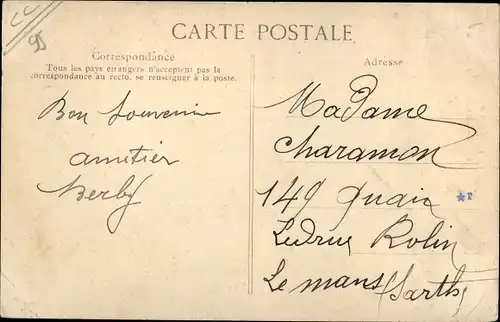 CARTE POSTALE
Correspondance
Tous les pays étrangers n'acceptent pas la
correspondance au recto, se renseigner à la poste.
Adresse
Bon souvenir
amitier
Berby
Madame
Charamon
149 quai
Ledrue Rolin
Le mans (Sarth)